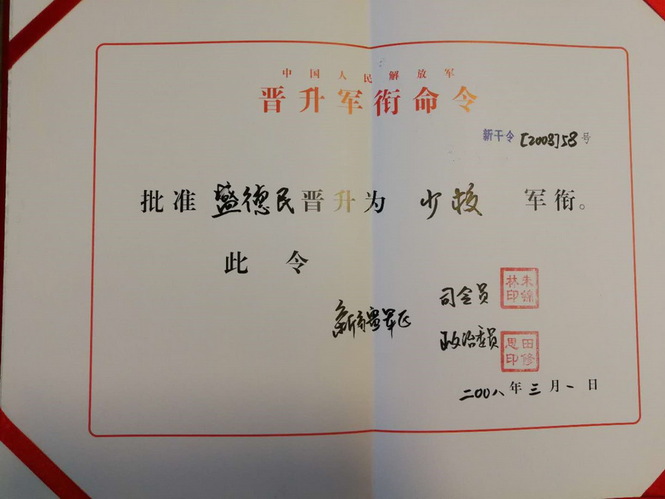 中国人民解放军
晋升军衔命令
新干令[2008]58号
批准盛德民晋升为少校军衔。
此令
新疆军区
司令员
朱锦林印
政治委员
田修思印
二00八年三月一日